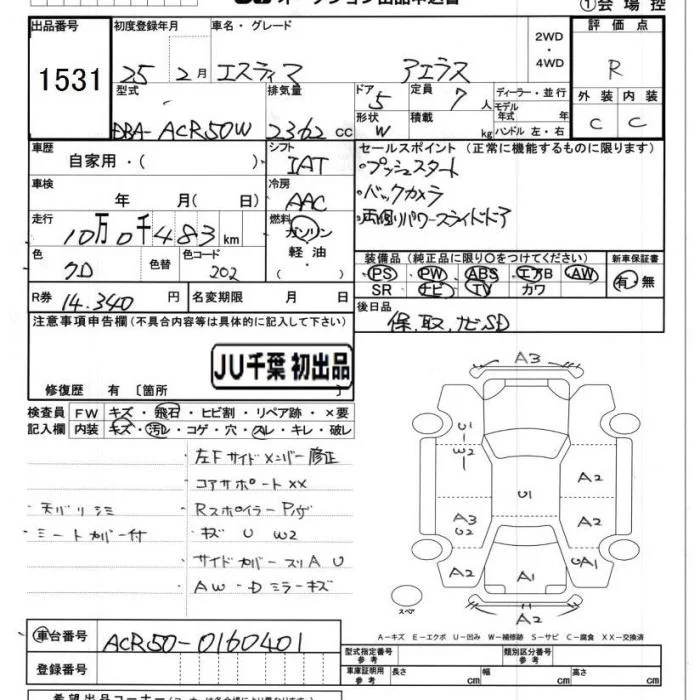 ①会場控
出品番号 初度登録年月 車名・グレード 2WD・4WD 評価点
1531 25年 2月 エスティマ アエラス R
型式 排気量 ドア 5 定員 7人 ディーラー・並行 外装 内装
DBA-ACR50W 2362cc 形状 W 積載 kg モデル年式 年 ハンドル 左・右 C C
車歴 自家用・( ) シフト IAT セールスポイント (正常に機能するものに限ります)
・プッシュスタート
車検 年 月( 日) 冷房 AAC ・バックカメラ
走行 10万0千483km 燃料 ガソリン 軽油・( ) ・両側パワースライドドア
色 クロ 色替 色コード 202
装備品 (純正品に限り○をつけてください) 新車保証書
PS PW ABS エアB AW 有・無
SR ナビ TV カワ
R券 14.340円 名変期限 月 日 後日品
保.取.ナビSD
注意事項申告欄(不具合内容等は具体的に記入して下さい)
JU千葉 初出品
修復歴 有 〔箇所 〕
検査員 FW キズ・飛石・ヒビ割・リペア跡・×要
記入欄 内装 キズ・汚レ・コゲ・穴・スレ・キレ・破レ
左Fサイドメンバー修正
コアサポートXX
・天バリシミ Rスポイラー
・シートカバー付 キズ U W2
サイドカバースリA U
AW-Dミラーキズ
A3
U
W2
A2
U1
A3
U2
A2
A2
A1
UA1
A2
スペア
A-キズ E-エクボ U-凹み W-補修跡 S-サビ C-腐食 XX-交換済
車台番号 ACR50-0160401
型式指定番号 参考 類別区分番号 参考
登録番号 車庫証明用 参考 長さ cm 幅 cm 高さ cm